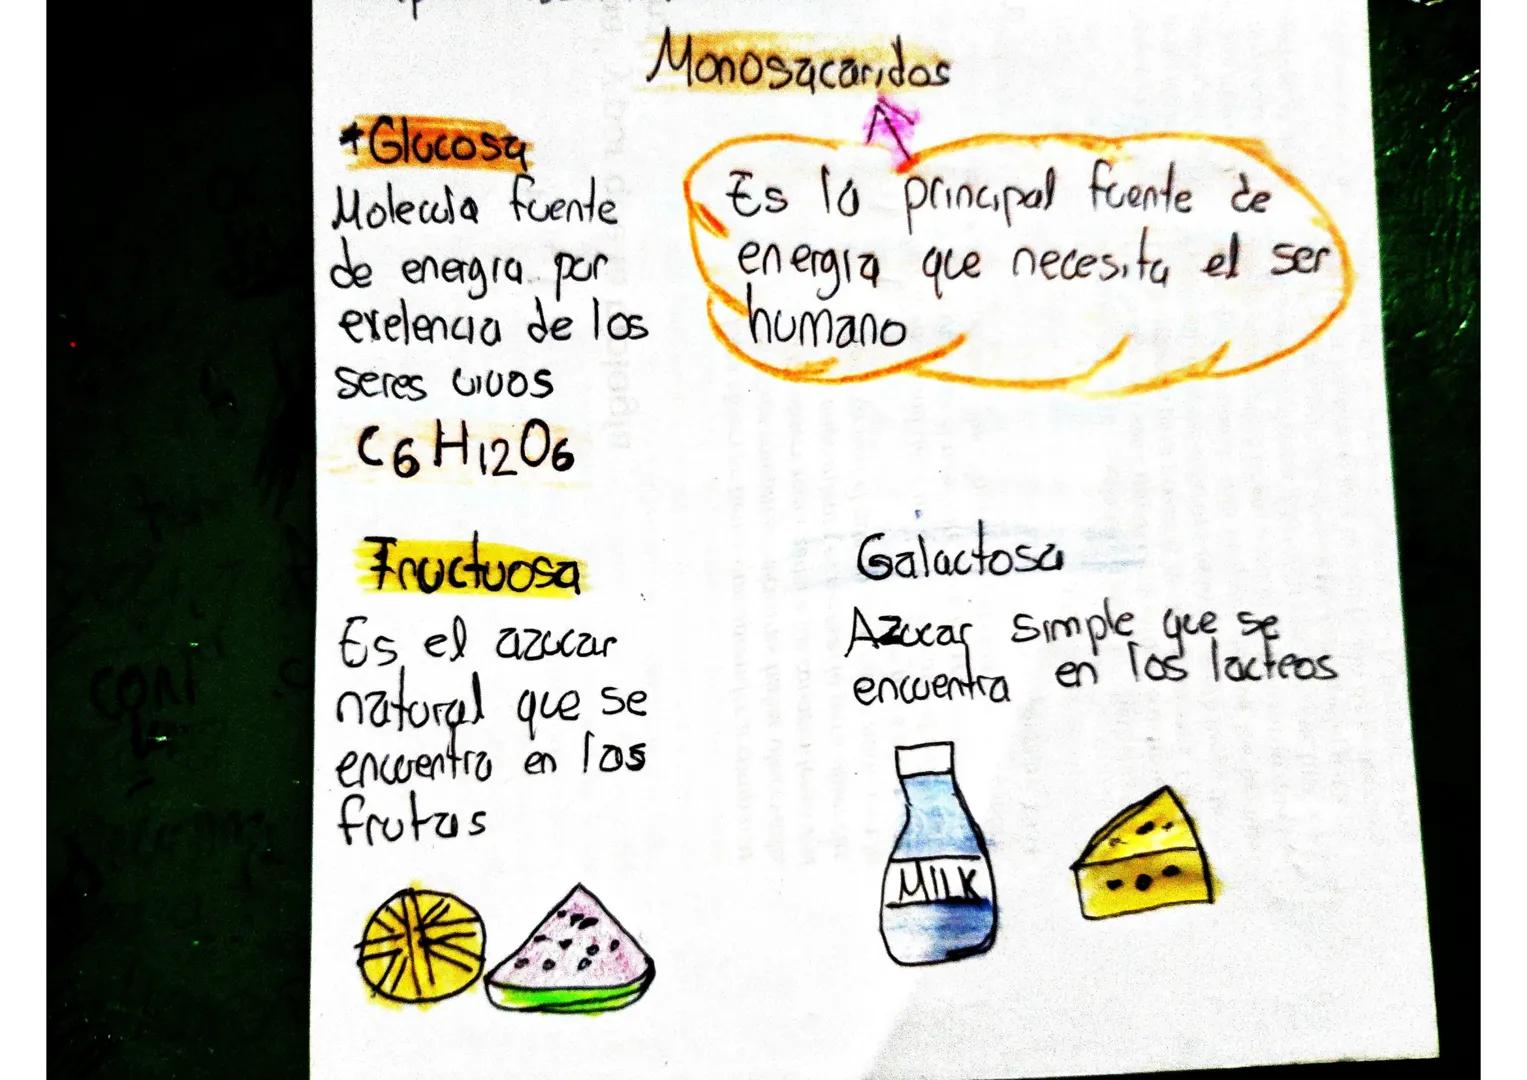 Monosacaridos
+Glucosa
Molecula fuente
de energia por
exelencia de los
seres vivos
C6H12O6
Es la principal fuente de
energia que necesita el ser
humano
Fructuosa
Es el azucar
natural que se
encuentra en las
frutas
Galactosa
Azucar simple que se
encuentra en los lacteos
MILK